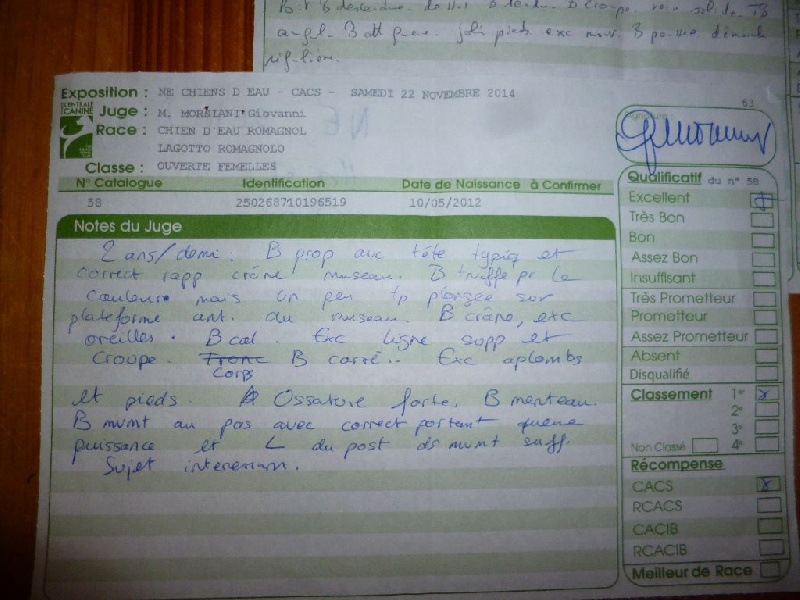 angul. B patte jolis pieds exc mvt. B
Exposition : NE CHIENS D EAU - CACS - SAMEDI 22 NOVEMBRE 2014
CENTRALE CANINE
Juge : M. MORSIANI Giovanni
Race : CHIEN D'EAU ROMAGNOL
LAGOTTO ROMAGNOLO
Classe : OUVERTE FEMELLES
N° Catalogue Identification Date de Naissance à Confirmer
58 250268710196519 10/05/2012
Notes du Juge
2 ans/demi. B prop avec tête typiq et
correct rapp crâne museau. B truffe pr la
couleur mais un peu tp plongée sur
plateforme ant. du museau. B crâne, exc
oreilles. B col. Exc ligne sup et
croupe. Tronc B carré. Exc aplombs
Corps
et pieds. Ossature forte. B manteau.
B mvmt au pas avec correct portant queue
puissance et L du post ds mvmt suff.
Sujet interessant.
63
Signature
Qualificatif du n° 58
Excellent
Très Bon
Bon
Assez Bon
Insuffisant
Très Prometteur
Prometteur
Assez Prometteur
Absent
Disqualifié
Classement 1er x
2e
3e
Non Classé 4e
Récompense
CACS x
RCACS
CACIB
RCACIB
Meilleur de Race